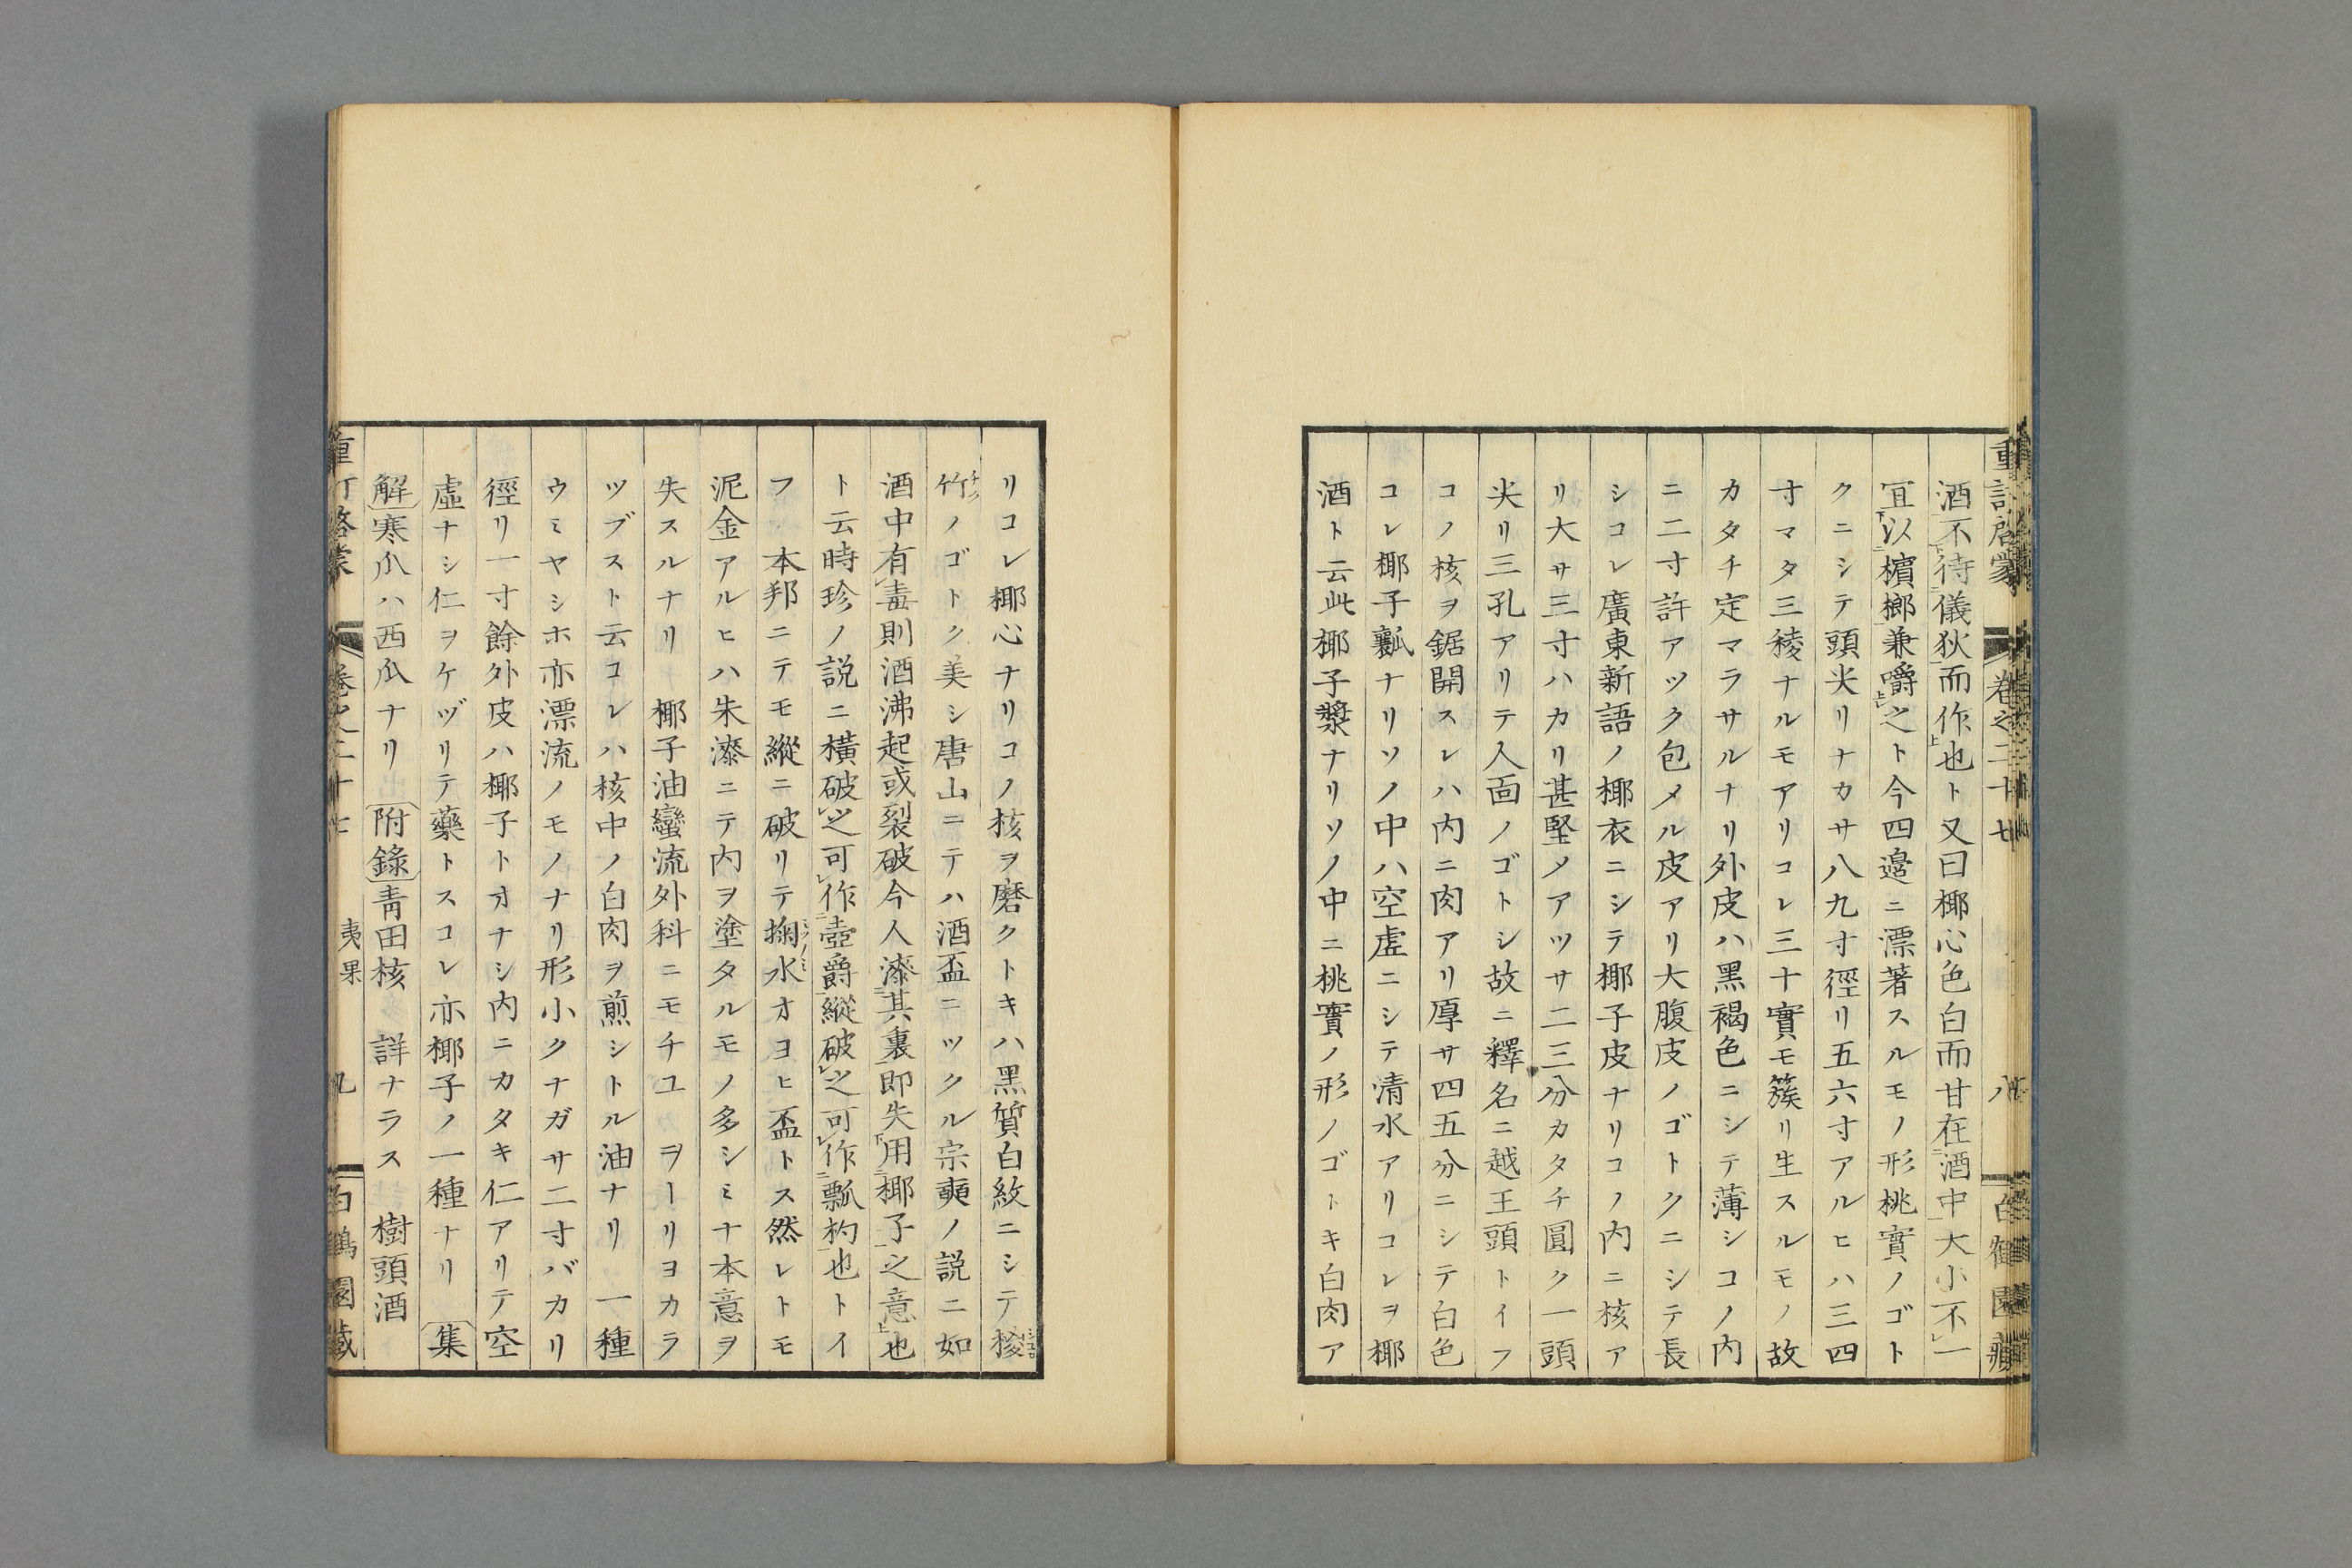 重訂啓蒙 卷之二十七 八
酒不待儀狄而作也ト又曰椰心色白而甘在酒中大小不一
宜以檳榔兼嚼之ト今四邉ニ漂著スルモノ形桃實ノゴト
クニシテ頭尖リナカサ八九寸徑リ五六寸アルヒハ三四
寸マタ三稜ナルモアリコレ三十實モ簇リ生スルモノ故
カタチ定マラサルナリ外皮ハ黑褐色ニシテ薄シコノ内
ニ二寸許アツク包メル皮アリ大腹皮ノゴトクニシテ長
シコレ廣東新語ノ椰衣ニシテ椰子皮ナリコノ内ニ核ア
リ大サ三寸ハカリ甚堅メアツサ二三分カタチ圓ク一頭
尖リ三孔アリテ人面ノゴトシ故ニ釋名ニ越王頭トイフ
コノ核ヲ鋸開スレハ内ニ肉アリ厚サ四五分ニシテ白色
コレ椰子瓤ナリソノ中ハ空虛ニシテ清水アリコレヲ椰
酒ト云此椰子漿ナリソノ中ニ桃實ノ形ノゴトキ白肉ア
リコレ椰心ナリコノ核ヲ磨クトキハ黑質白紋ニシテ椶
竹ノゴトク美シ唐山ニテハ酒盃ニツクル宗奭ノ説ニ如
酒中有毒則酒沸起或裂破今人漆其裏即失用椰子之意也
ト云時珍ノ説ニ横破之可作壺爵縱破之可作瓢杓也トイ
フ 本邦ニテモ縱ニ破リテ掬水オヨヒ盃トス然レトモ
泥金アルヒハ朱漆ニテ内ヲ塗タルモノ多シミナ本意ヲ
失スルナリ 椰子油蠻流外科ニモチユ ヲーリヨカラ
ツブスト云コレハ核中ノ白肉ヲ煎シトル油ナリ 一種
ウミヤシホ亦漂流ノモノナリ形小クナガサ二寸バカリ
徑リ一寸餘外皮ハ椰子トオナシ内ニカタキ仁アリテ空
虛ナシ仁ヲケヅリテ藥トスコレ亦椰子ノ一種ナリ 集
解寒瓜ハ西瓜ナリ 附錄青田核 詳ナラス 樹頭酒
夷果 九